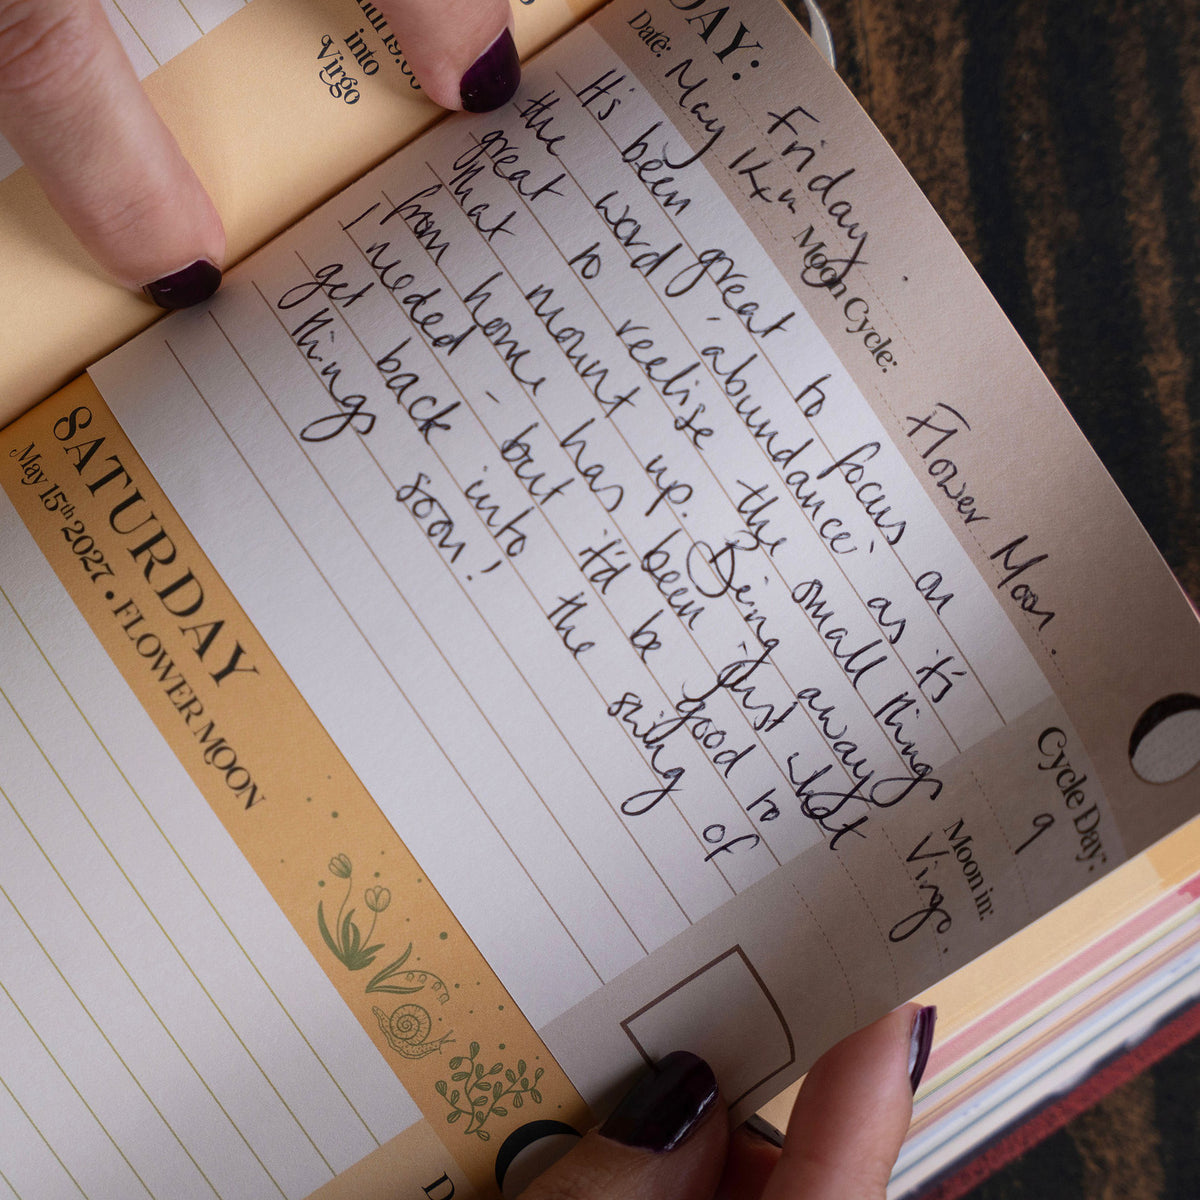 into
Virgo
DAY: Friday.
Date: May 14th Moon Cycle: Flower Moon.
Cycle Day: 9
Moon in: Virgo.
It's been great to focus on
the word 'abundance' as it's
great to realise the small things
that mount up. Being away
from home has been just what
I needed - but it'd be good to
get back into the swing of
things soon!
SATURDAY
May 15th 2027 • FLOWER MOON
D